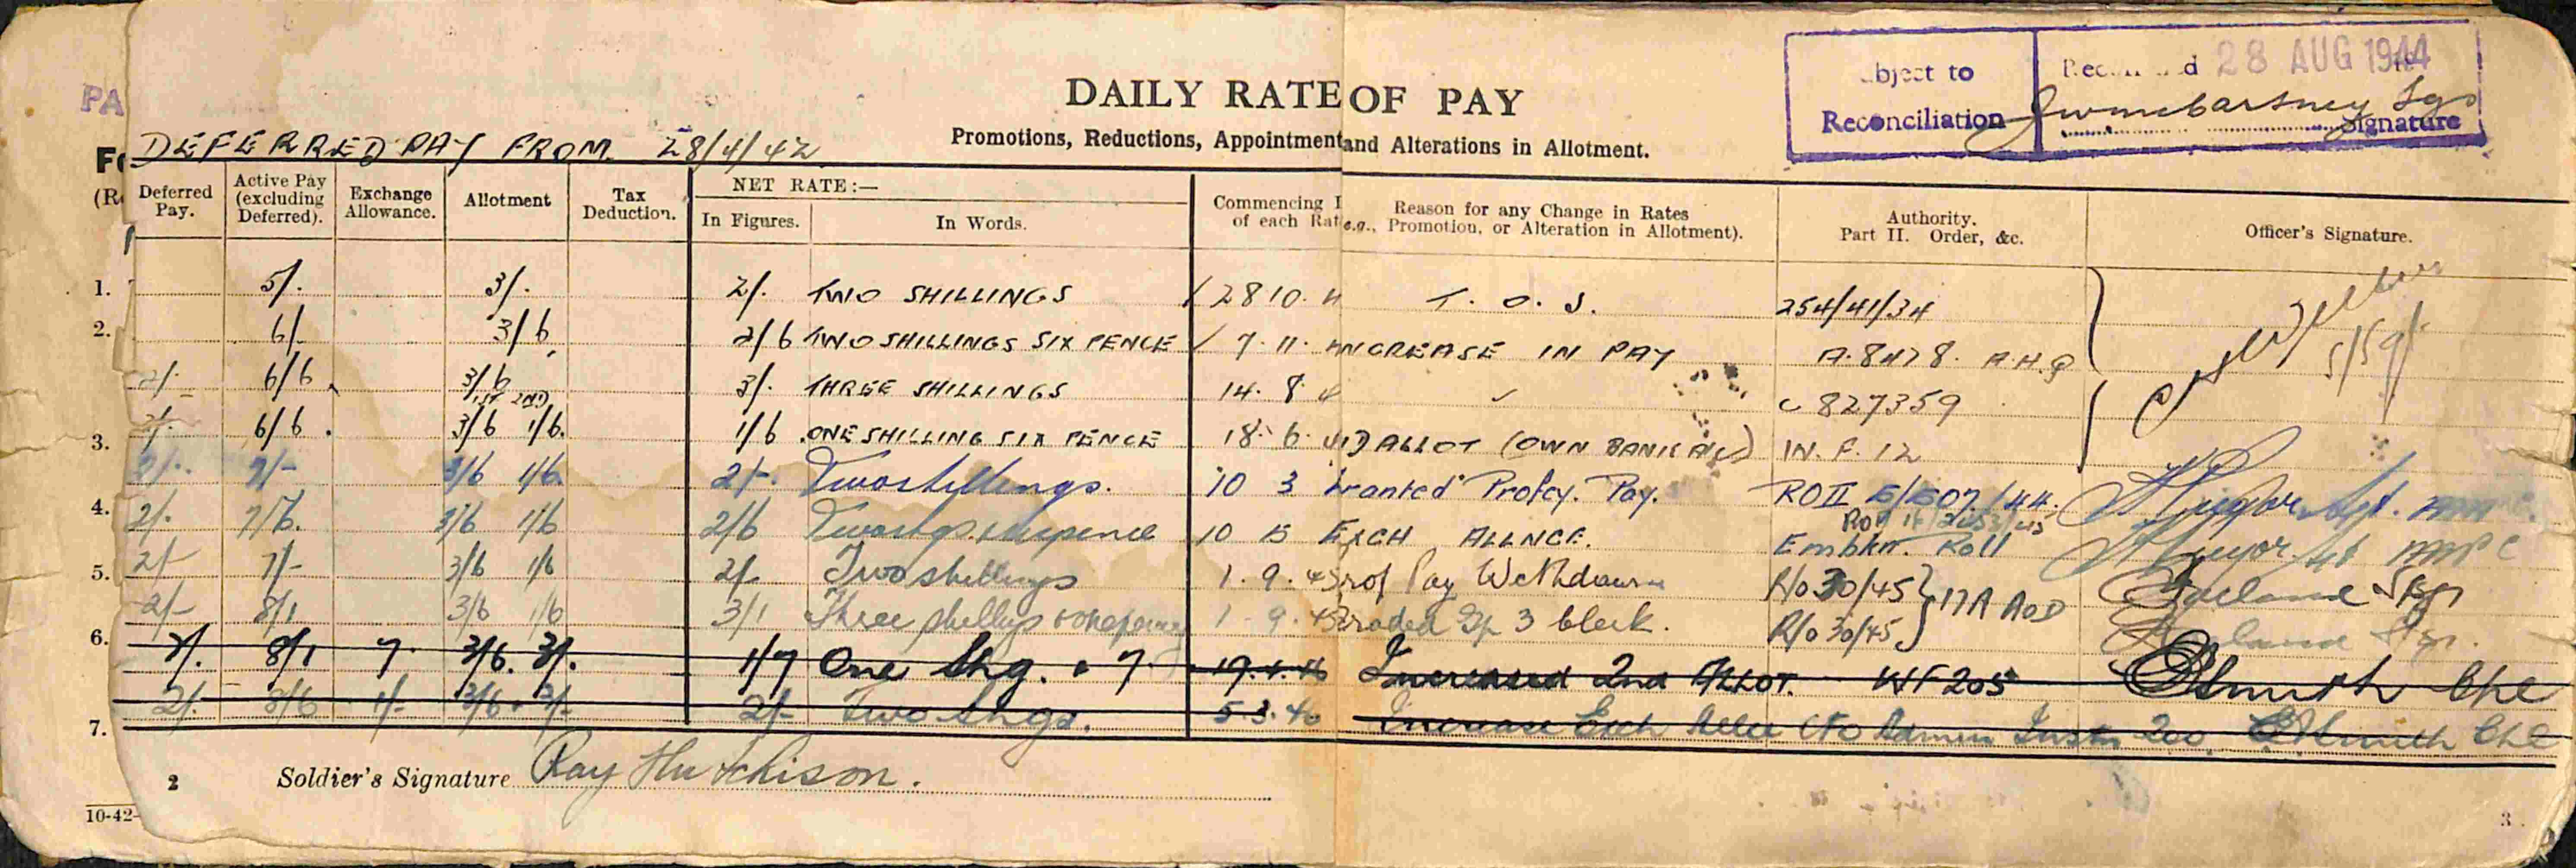 PA
bject to
Reconciliation
28 AUG 1944
Signature
DAILY RATE OF PAY
Promotions, Reductions, Appointment and Alterations in Allotment.
DEFERRED PAY FROM 28/4/42
Deferred Pay. Active Pay (excluding Deferred). Exchange Allowance. Allotment Tax Deduction. NET RATE:— In Figures. In Words. Commencing of each Rat e.g., Reason for any Change in Rates Promotion, or Alteration in Allotment). Authority. Part II. Order, &c. Officer's Signature.
1. 5/. 3/. 2/. TWO SHILLINGS 28 10. T. O. S. 254/41/34
2. 6/- 3/6 2/6 TWO SHILLINGS SIX PENCE 7. 11. INCREASE IN PAY A.8478. A.H.Q
2/- 6/6 3/6 3/. THREE SHILLINGS 14. 8 C 827359
3. 2/. 6/6. 1ST 2ND 3/6 1/6. 1/6 ONE SHILLING SIX PENCE 18. 6. ALLOT (OWN BANK A/C) IN. F. 12
2/. 7/- 3/6 1/6. 2/-. Two shillings. 10 3 Granted Profcy. Pay. ROII 5/507/44.
4. 2/. 7/6. 3/6 1/6 2/6 10 EXCH ALLNCE. Embkn. Roll
5. 2/- 7/- 3/6 1/6 2/- Two shillings 1. 9. 45 Prof Pay Withdrawn R/o 30/45 17A AOD
2/- 8/1 3/6 1/6 3/1 Three shillings 1. 9. 45 Graded Gp 3 clerk. R/o 30/45
6. 2/. 8/1 7. 3/6. 3/. 1/7 One Shg. & 7 Increased 2nd Allot. WF205
2/- 8/6 1/- 3/6. 3/- 2/- Two Shgs. 5.3.46 Increase Exch Admin Instn 200
7.
2 Soldier's Signature Ray Hutchison.
10-42-
3